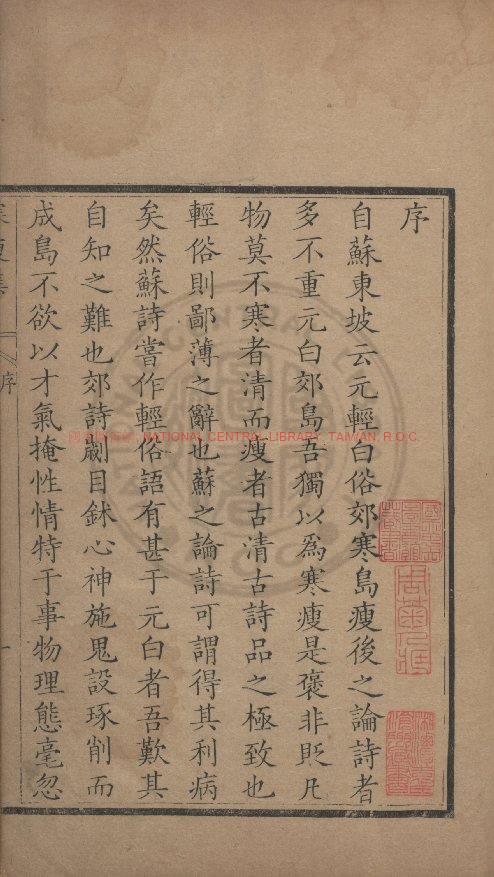 序
自蘇東坡云元輕白俗郊寒島瘦後之論詩者
多不重元白郊島吾獨以爲寒瘦是褒非貶凡
物莫不寒者清而瘦者古清古詩品之極致也
輕俗則鄙薄之辭也蘇之論詩可謂得其利病
矣然蘇詩嘗作輕俗語有甚于元白者吾歎其
自知之難也郊詩劌目鉥心神施鬼設琢削而
成島不欲以才氣掩性情特于事物理態毫忽
序
NATIONAL CENTRAL LIBRARY, TAIWAN, R.O.C.